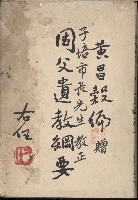 黃昌穀 編贈
子培市長先生教正
國父遺教綱要
右任